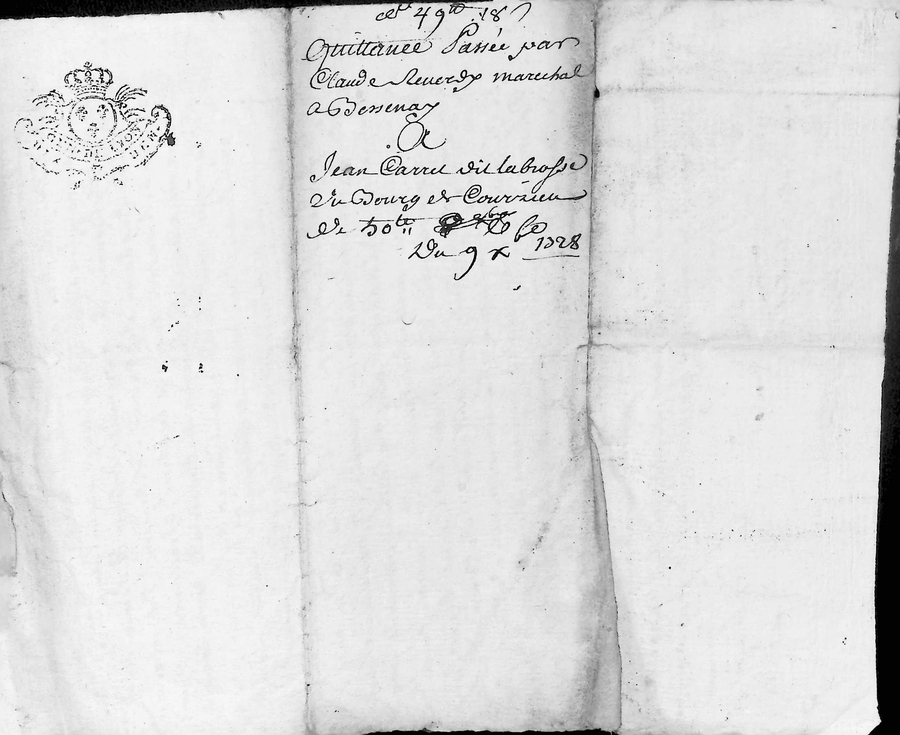 49ᵗᵗ 18
Quittance Passée par
Claude Reverdy marechal
a Bessenay
A
Jean Carret dit labrosse
Du Bourg de Courzieu
de 50ᵗᵗ
Du 9 x 1728
DE LYON